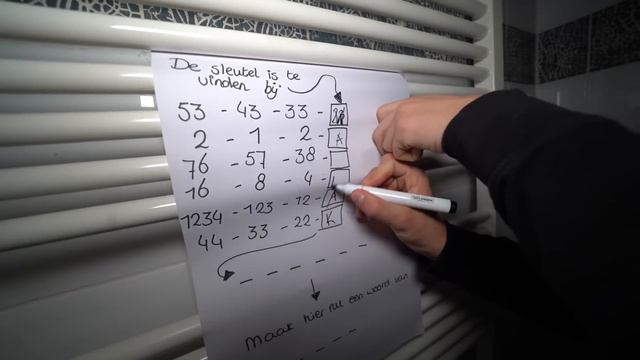 De sleutel is te
vinden bij:
53 - 43 - 33 -
2 - 1 - 2 - A
76 - 57 - 38 -
16 - 8 - 4 -
1234 - 123 - 12 - A
44 - 33 - 22 - K
Maak hier nu een woord van